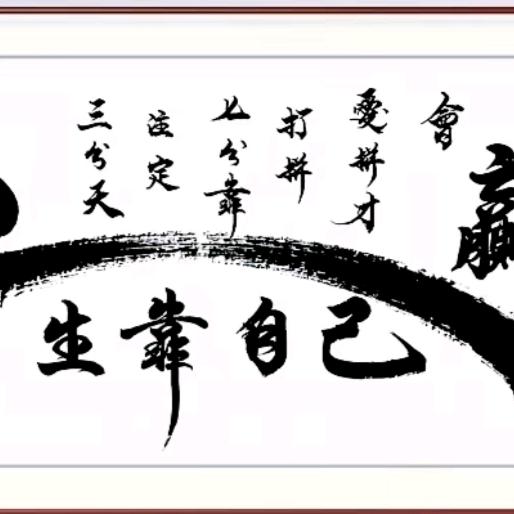 三分天
注定
七分靠
打拼
愛拼才
會
贏
生靠自己